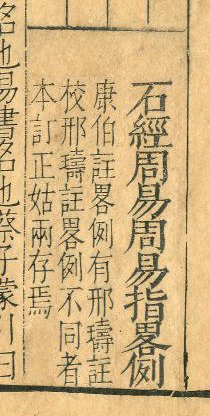 石經周易周易指畧例
康伯註畧例有邢璹註
校邢璹註畧例不同者
本訂正姑兩存焉
名也易書名也蔡子蒙引曰